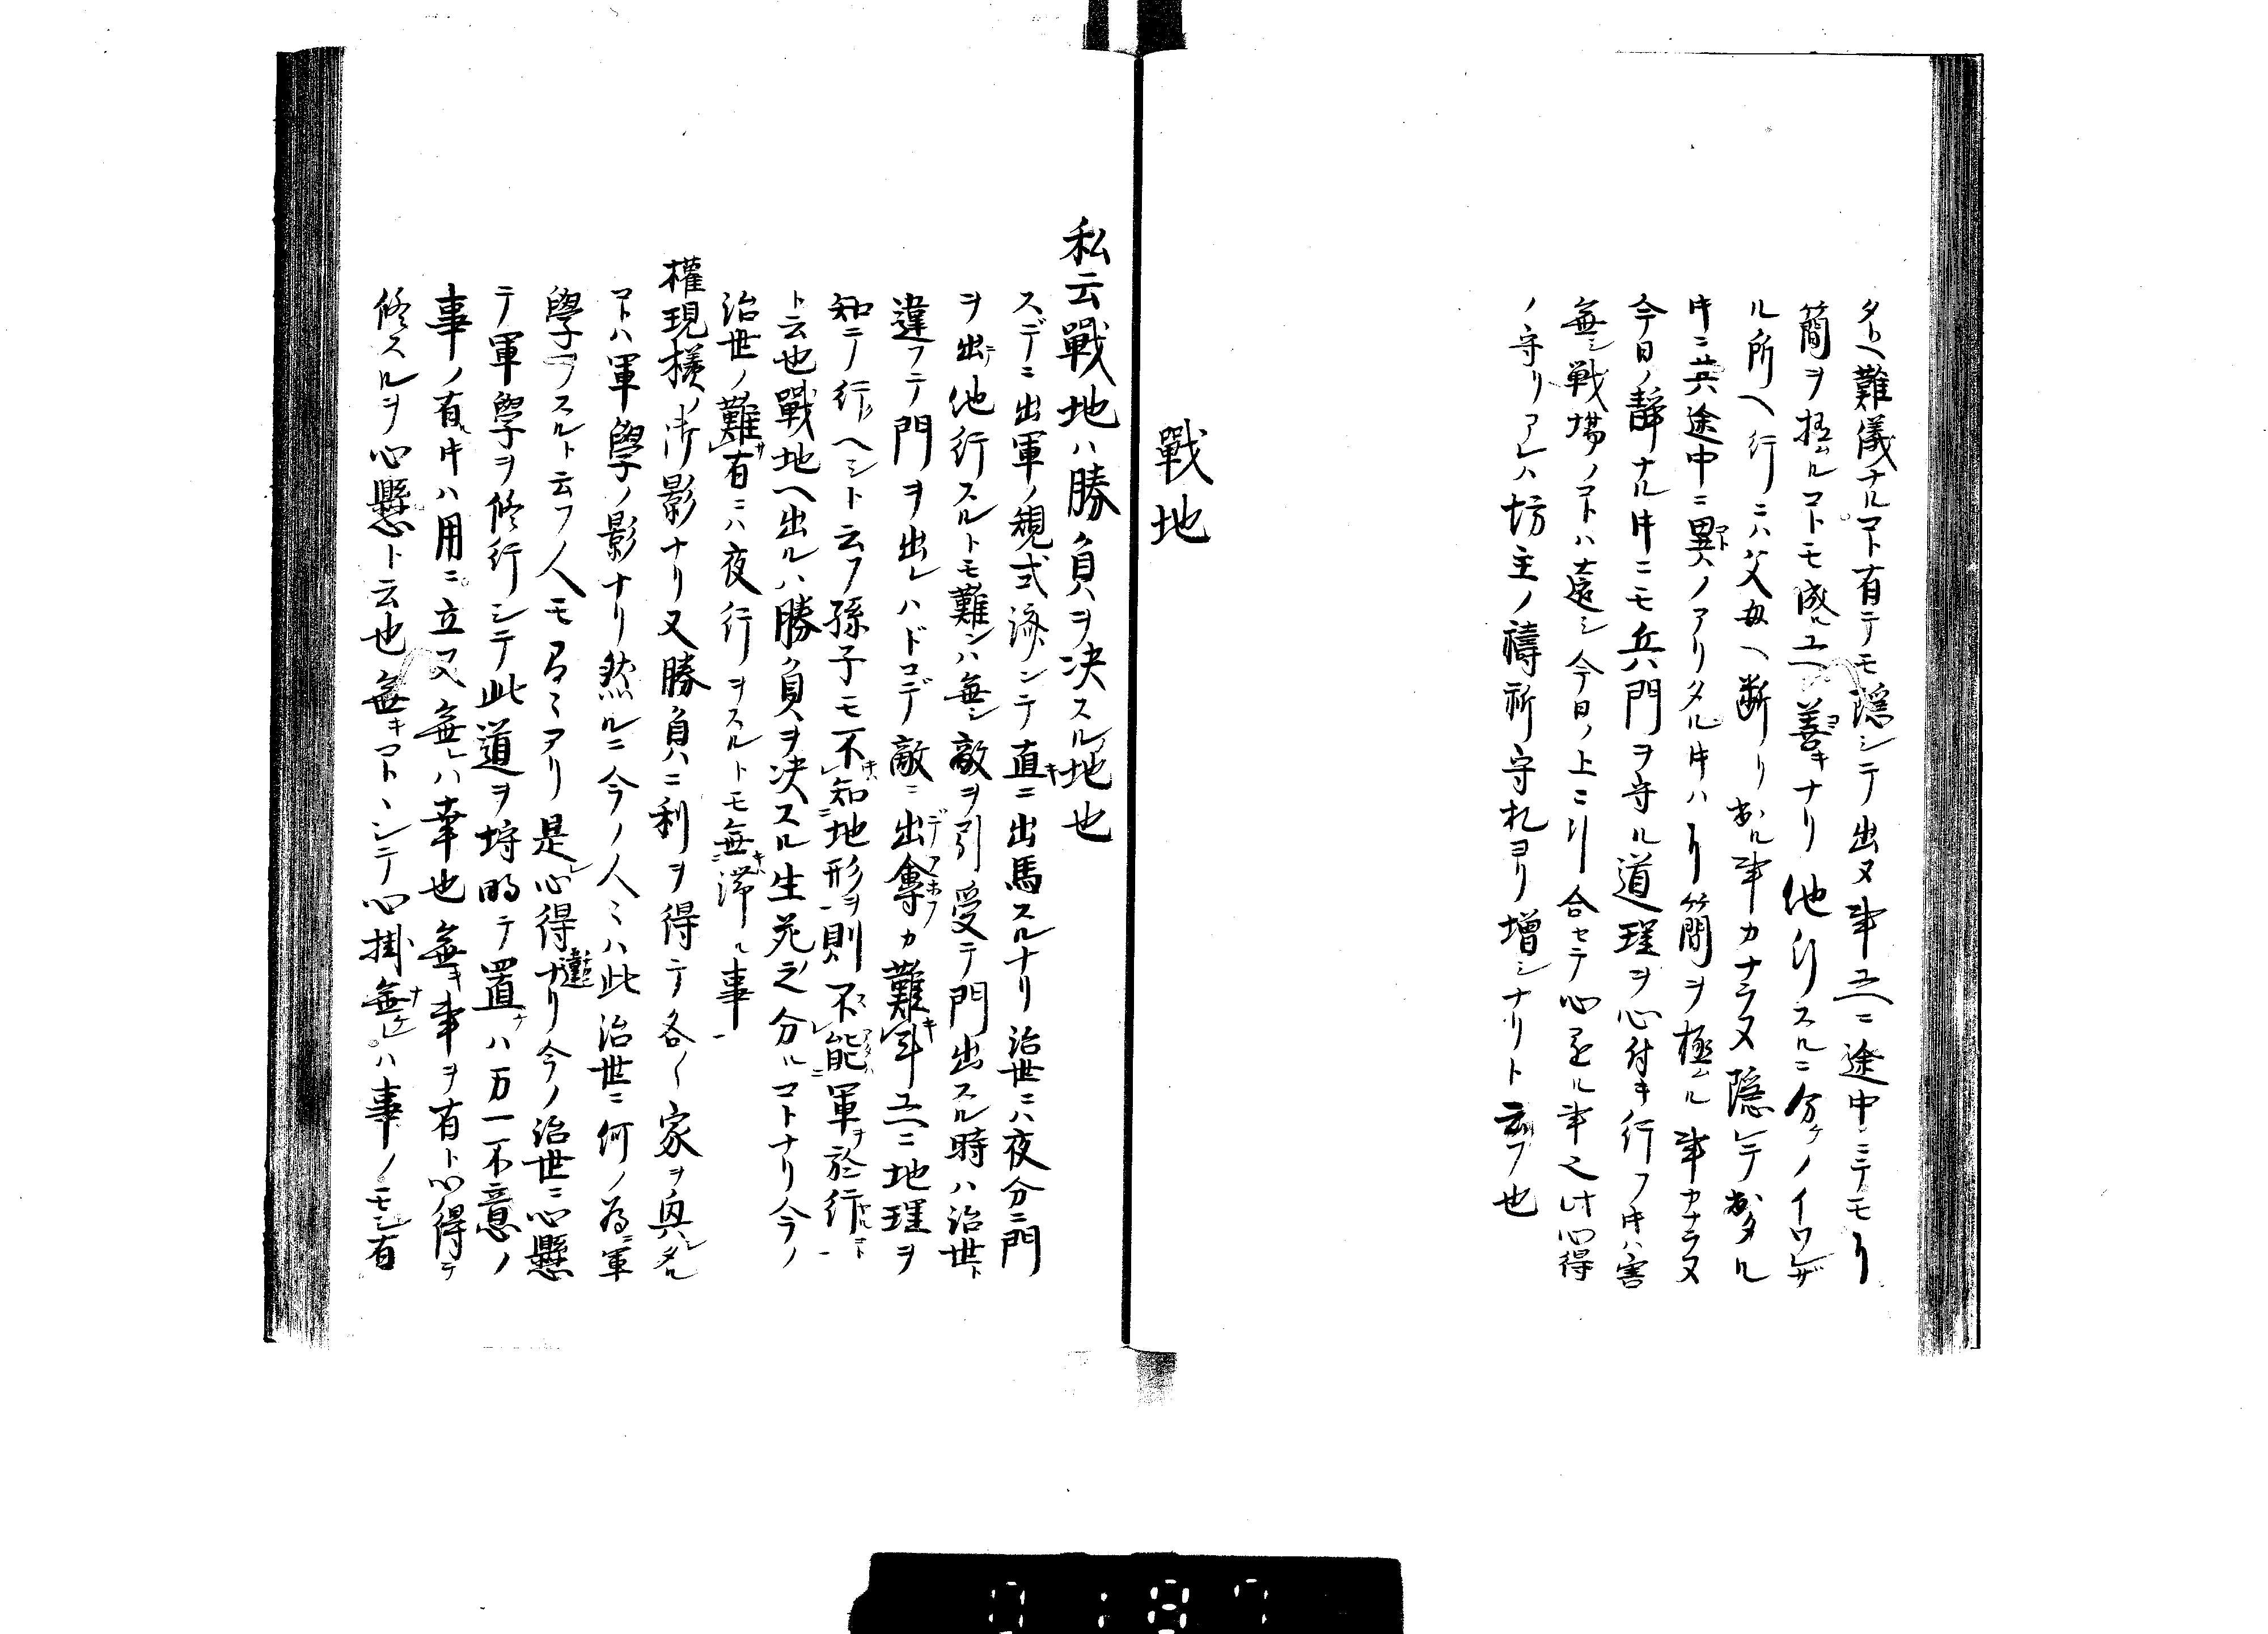 タトヘ難儀ナルコト有テモ隠シテ出ヌ事ユヘニ途中ニテモ了
簡ヲ極ムルコトモ成ルユヘ善キナリ他行スルニ分ケノイワレザ
ル所ヘ行ニハ父母ヘ断リ出ル事カナラヌ隠レテ出タル
片ニ其途中ニ異ノアリタル片ハ了簡ヲ極ムル事カナラヌ
今日ノ静ナル片ニモ兵門ヲ守ル道理ヲ心付キ行フ片ハ害
無シ戦場ノコトハ遠シ今日ノ上ニ引合セテ心
ノ守リアレハ坊主ノ禱祈守札ヨリ増シナリト云フ也
戰地
私云戰地ハ勝負ヲ决スル地也
スデニ出軍ノ規式済ンテ直ニ出馬スルナリ治世ニハ夜分ニ門
ヲ出テ他行スルトモ難ンハ無シ敵ヲ引受テ門出スル時ハ治世ト
違フテ門ヲ出レハドコデ敵ニ出會カ難斗ユヘニ地理ヲ
知ニノ行ヘシト云フ孫子モ不知地形ヲ則不能軍ヲ於行
ト云也戰地ヘ出ルハ勝負ヲ决スル生死之分ルコトナリ今ノ
治世ノ難有ニハ夜行ヲスルトモ無滞ル事
權現様ノ御影ナリ又勝負ハニ利ヲ得テ各〱家ヲ興シタル
コトハ軍學ノ影ナリ然ルニ今ノ人〻ハ此治世ニ何ノ為ニ軍
學ヲスルト云フ人モ間〻アリ是レ心得違ナリ今ノ治世ニ心懸
テ軍學ヲ修行シテ此道ヲ埒明テ置ケハ万一不意ノ
事ノ有ル片ハ用ニ立又無レハ幸也無キ事ヲ有ト心得テ
修スルヲ心懸ト云也無キコトヽシテ心掛無レハ事ノモシ有